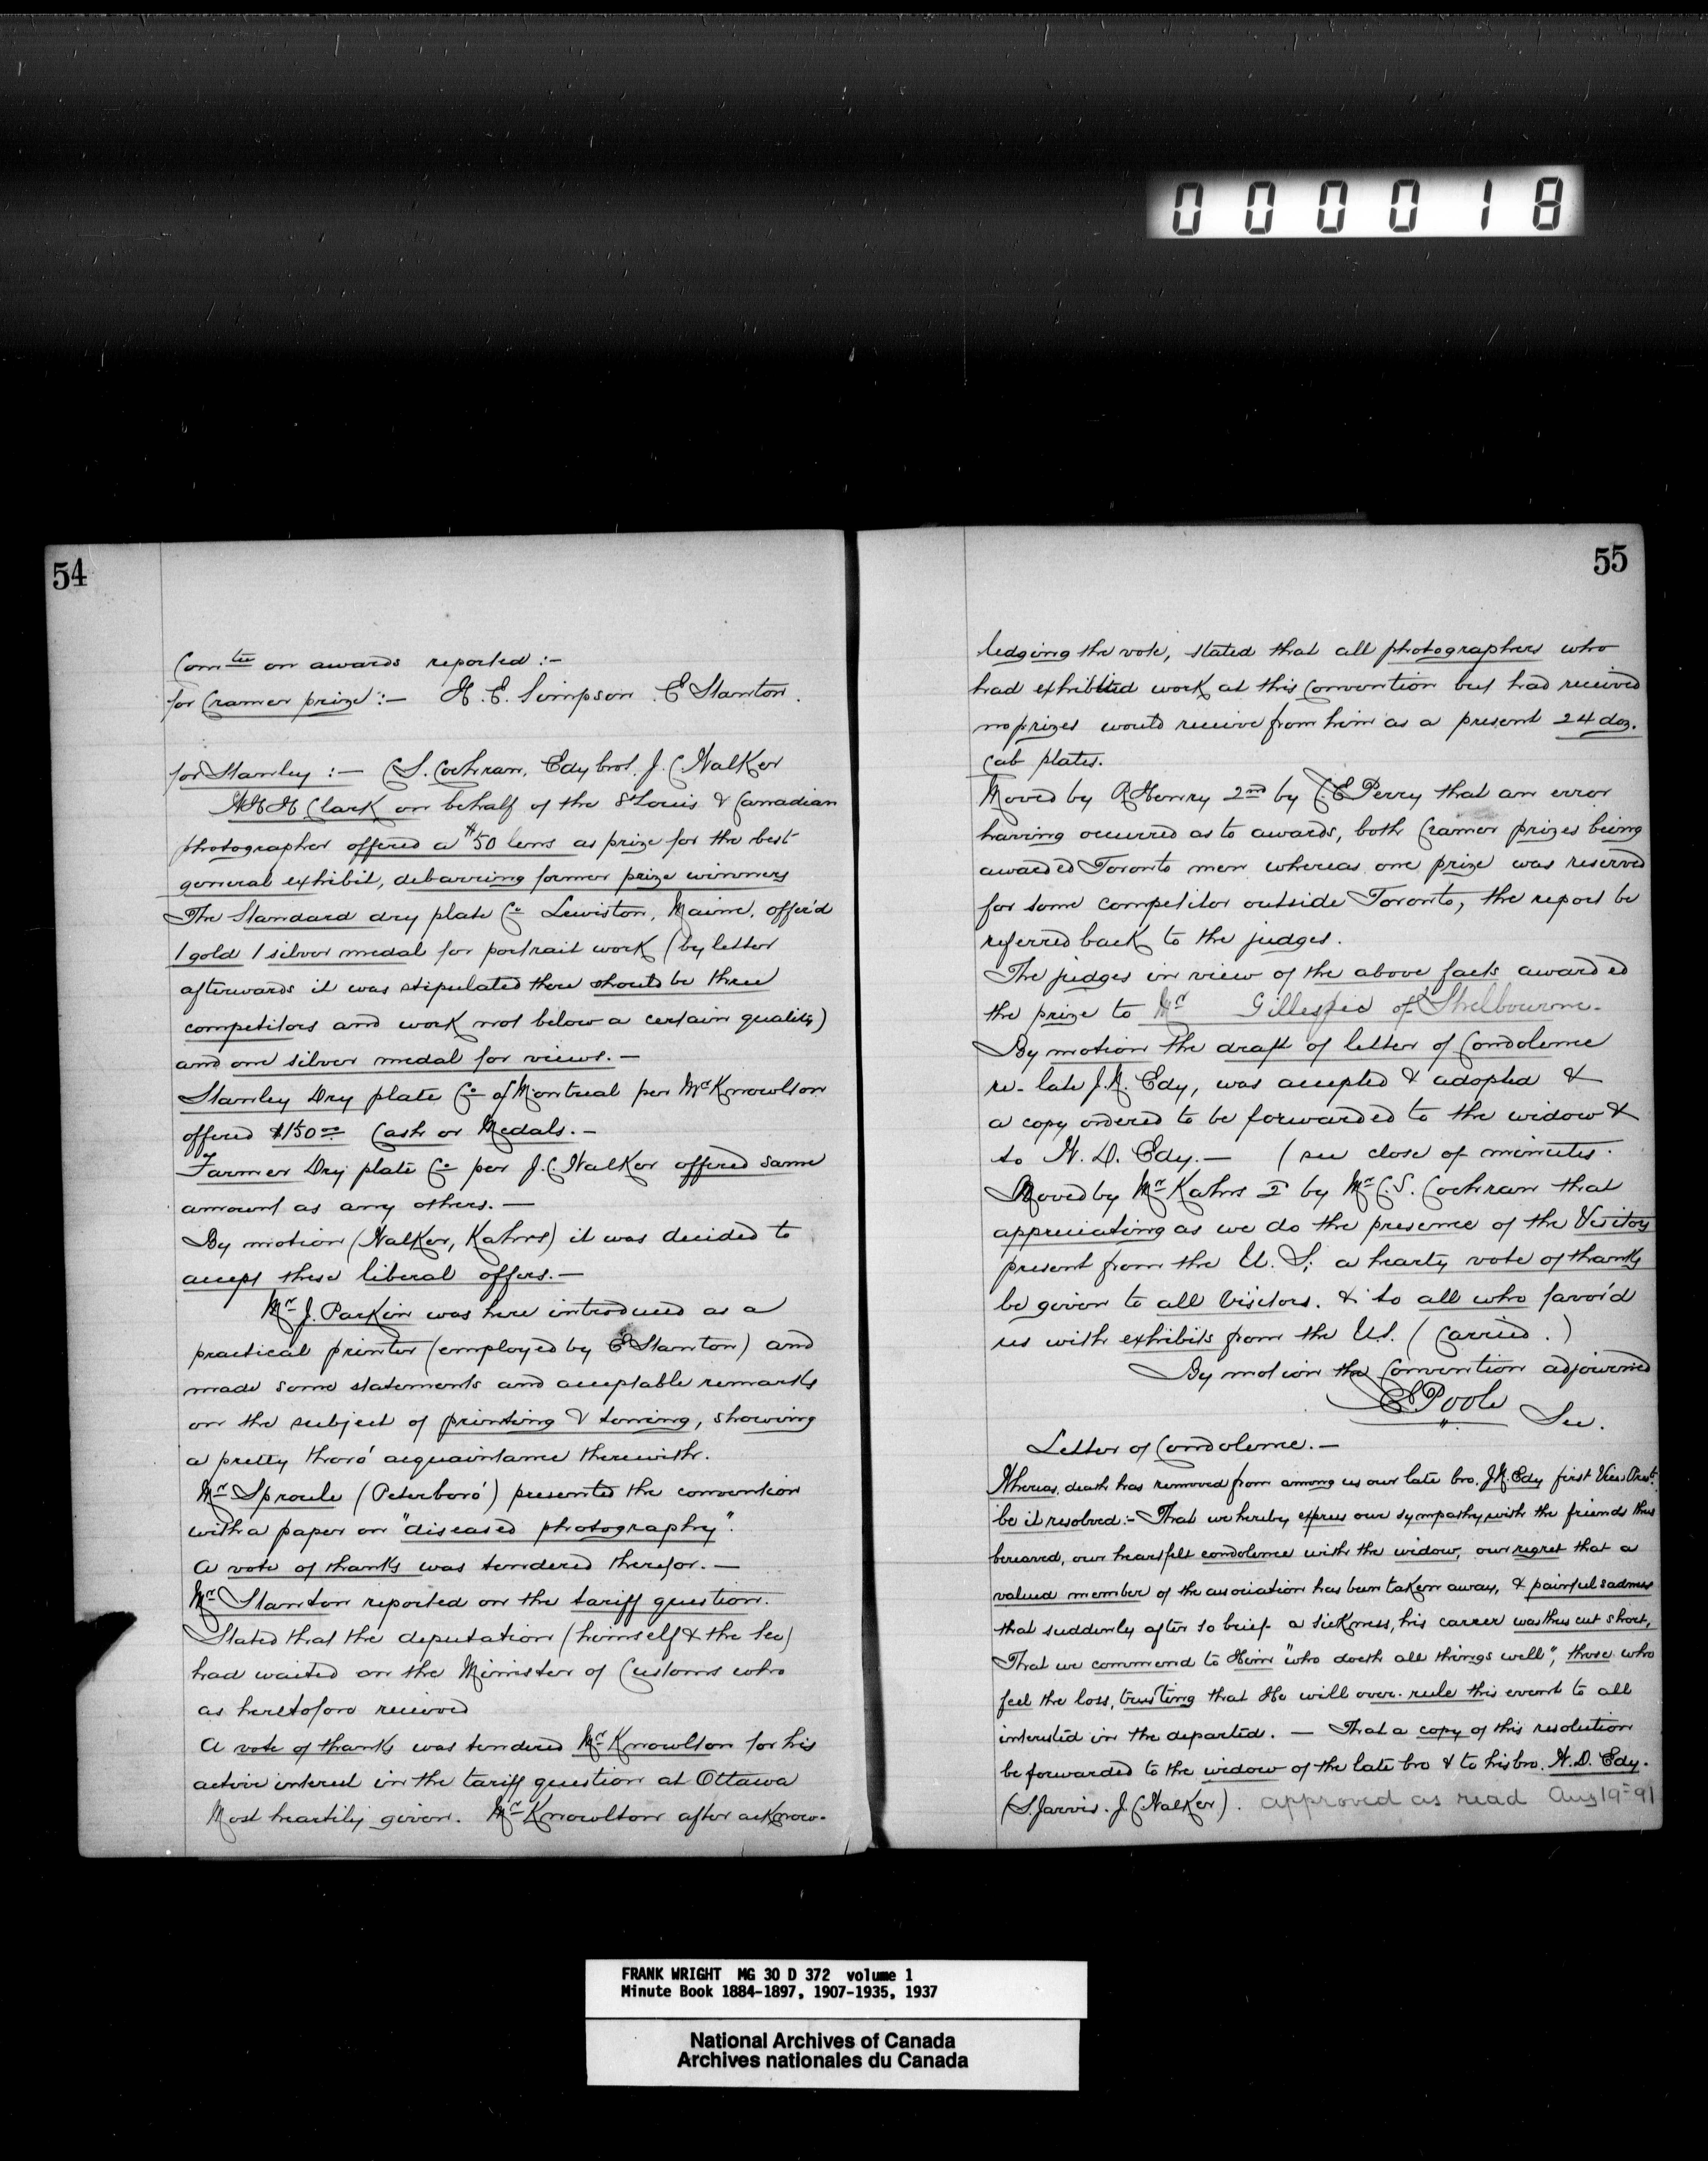 000018
54
Com tee on awards reported :-
for Cramer prize :- H. E. Simpson. E Stanton.
for Stanley :- C S. Cochran, Edy bros. J. C Walker
H H Clark on behalf of the St Louis & Canadian
photographer offered a $50 lens as prize for the best
general exhibit, debarring former prize winners
The Standard dry plate Co Lewiston, Maine, offer'd
1 gold 1 silver medal for portrait work (by letter
afterwards it was stipulated there should be three
competitors and work not below a certain quality)
and one silver medal for views. -
Stanley Dry plate Co of Montreal per Mr Knowlton
offered $150 00 Cash or Medals. -
Farmer Dry plate Co per J. C. Walker offered same
amount as any others. -
By motion (Walker, Kahrs) it was decided to
accept these liberal offers. -
Mr J. Parkin was here introduced as a
practical printer (employed by E Stanton) and
made some statements and acceptable remarks
on the subject of printing & toning, showing
a pretty thoro' acquaintance therewith.
Mr Sproule (Peterboro') presented the convention
with a paper on "diseased photography".
A vote of thanks was tendered therefor. -
Mr Stanton reported on the tariff question.
Stated that the deputation (himself & the sec)
had waited on the Minister of Customs who
as heretofore received
A vote of thanks was tendered Mr Knowlton for his
active interest in the tariff question at Ottawa
Most heartily given. Mr Knowlton after acknow-
55
ledging the vote, stated that all photographers who
had exhibited work at this Convention but had received
no prizes would receive from him as a present 24 doz.
Cab plates.
Moved by R Henry 2nd by C. E Perry that an error
having occurred as to awards, both Cramer prizes being
awarded Toronto men whereas one prize was reserved
for some competitor outside Toronto, the report be
referred back to the judges.
The judges in view of the above facts awarded
the prize to Mr Gillespie of Shelbourne.
By motion the draft of letter of Condolence
re- late J. N. Edy, was accepted & adopted &
a copy ordered to be forwarded to the widow &
to W. D. Edy. - (see close of minutes.
Moved by Mr Kahrs 2d by Mr C. S. Cochran that
appreciating as we do the presence of the Visitors
present from the U. S. a hearty vote of thanks
be given to all Visitors. & to all who favo'd
us with exhibits from the US. (Carried.)
By motion the Convention adjourned
E Poole Sec.
Letter of Condolence. -
Whereas, death has removed from among us our late bro. J. N. Edy first Vice Prest.
be it resolved :- That we hereby express our sympathy with the friends thus
bereaved, our heartfelt condolence with the widow, our regret that a
valued member of the association has been taken away, & painful sadness
that suddenly after so brief a sickness, his career was thus cut short,
That we commend to Him "who doeth all things well", those who
feel the loss, trusting that He will over-rule this event to all
interested in the departed. - That a copy of this resolution
be forwarded to the widow of the late bro & to his bro. W. D. Edy.
(S. Jarvis. J. C Walker). approved as read Aug 19 - 91
FRANK WRIGHT MG 30 D 372 volume 1
Minute Book 1884-1897, 1907-1935, 1937
National Archives of Canada
Archives nationales du Canada